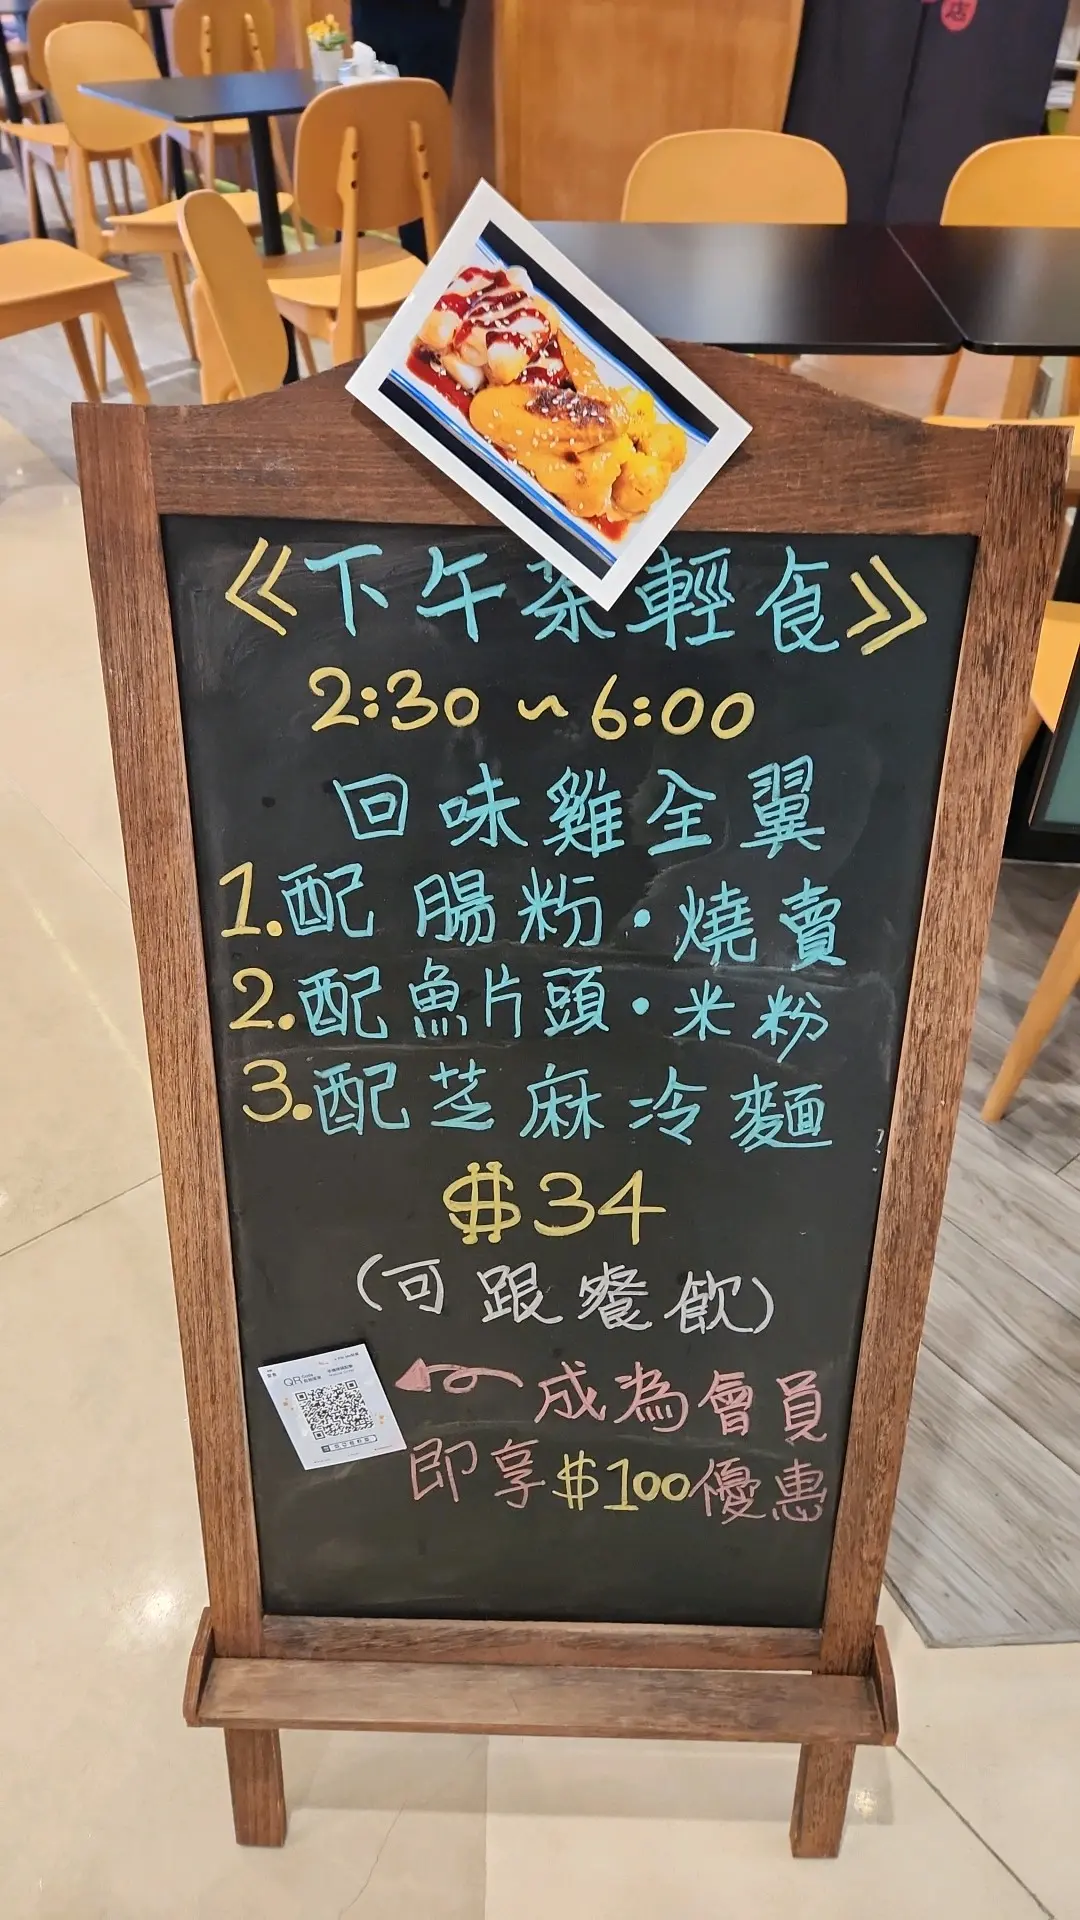 店
《下午茶輕食》
2:30 ~ 6:00
回味雞全翼
1.配腸粉·燒賣
2.配魚片頭·米粉
3.配芝麻冷麵
$34
(可跟餐飲)
QR Code
成為會員
即享$100優惠